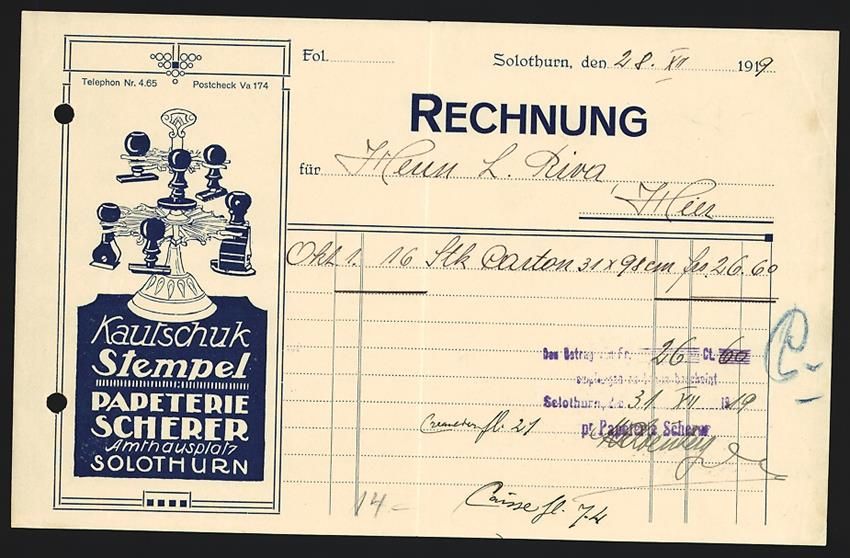 Telephon Nr. 4.65 Postcheck Va 174
Kautschuk
Stempel
PAPETERIE
SCHERER
Amthausplatz
SOLOTHURN
Fol.
Solothurn, den 28. XII 1919
RECHNUNG
für Herrn L. Riva,
Hier
Okt. 1. 16 Stk Carton 31 x 98 cm frs. 26.60
Den Betrag von Fr. 26 Ct. 60
empfangen zu haben bescheint
Solothurn, den 31 XII 1919
pr. Papeterie Scherer
fl. 21
14 -
Caisse fl. 74